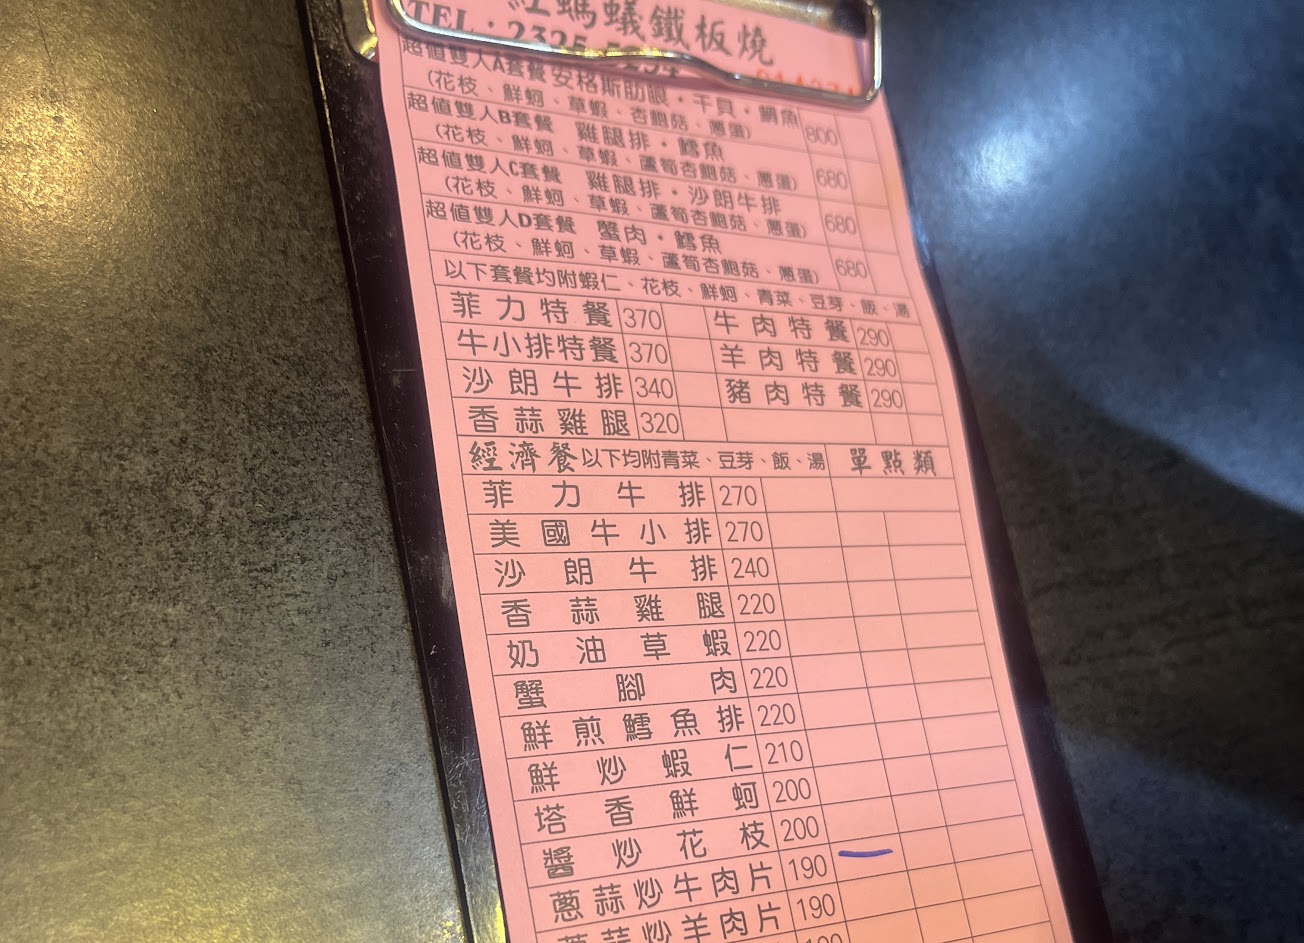 螞蟻鐵板燒
TEL：2325
超值雙人A套餐 安格斯肋眼・干貝・鯛魚 800
(花枝、鮮蚵、草蝦、杏鮑菇、蔥蛋)
超值雙人B套餐 雞腿排・鱈魚 680
(花枝、鮮蚵、草蝦、蘆筍杏鮑菇、蔥蛋)
超值雙人C套餐 雞腿排・沙朗牛排 680
(花枝、鮮蚵、草蝦、蘆筍杏鮑菇、蔥蛋)
超值雙人D套餐 蟹肉・鱈魚 680
(花枝、鮮蚵、草蝦、蘆筍杏鮑菇、蔥蛋)
以下套餐均附蝦仁、花枝、鮮蚵、青菜、豆芽、飯、湯
菲力特餐 370 牛肉特餐 290
牛小排特餐 370 羊肉特餐 290
沙朗牛排 340 豬肉特餐 290
香蒜雞腿 320
經濟餐 以下均附青菜、豆芽、飯、湯 單點類
菲力牛排 270
美國牛小排 270
沙朗牛排 240
香蒜雞腿 220
奶油草蝦 220
蟹腳肉 220
鮮煎鱈魚排 220
鮮炒蝦仁 210
塔香鮮蚵 200
醬炒花枝 200
蔥蒜炒牛肉片 190
蔥蒜炒羊肉片 190